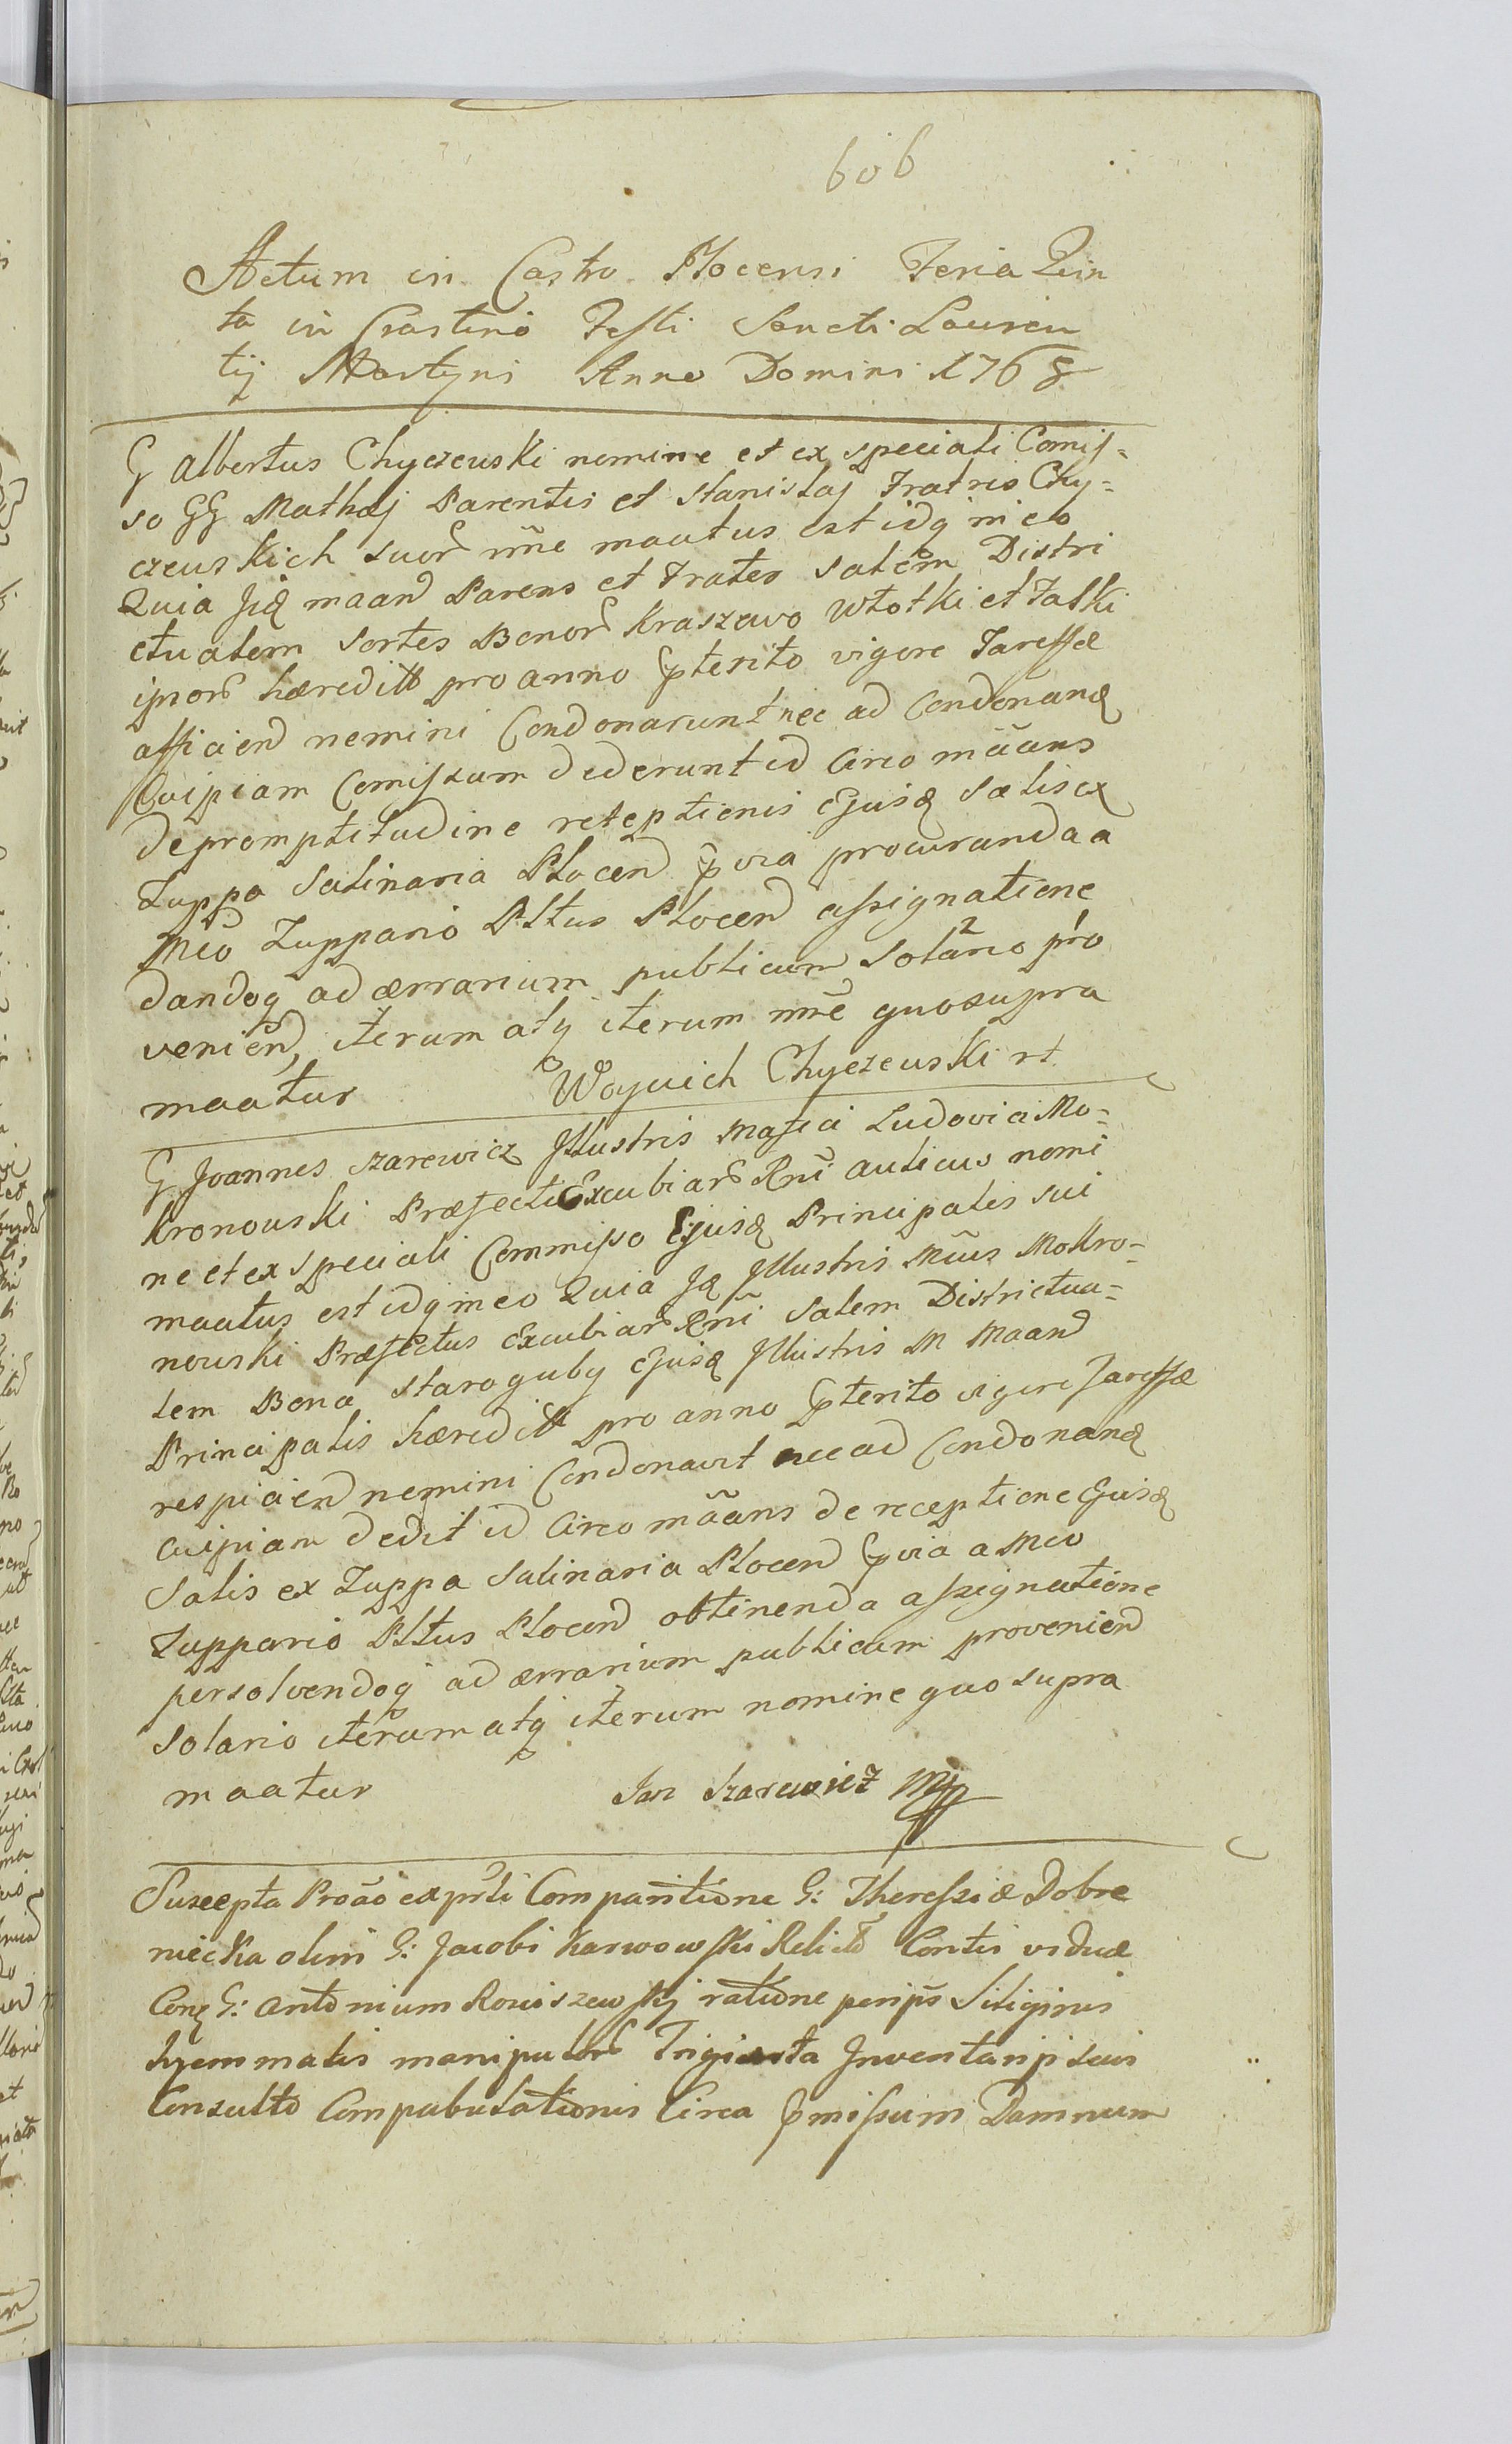 606
Actum in Castro Plocensi Feria Quin
ta in Crastino Festi Sancti Lauren
tij Martyris Anno Domini 1768
G Albertus Chyczewski nomine et ex speciali Comis=
so GG Mathæj Parentis et Stanislaj Fratris Chy=
czewskich suor nne maatus est idq in eo
Quia Jid maand Parens et Frater Salem Distri
ctualem Sortes Bonor Kraszewo Wtotki et Falki
ipsor hæreditt pro anno pterito vigore Tareffæ
afficiend nemini Condonarunt nec ad Condonand
Cuipiam Comissum dederunt id circo mãans
de promptitudine receptionis Ejusd Salis ex
Zuppa Salinaria Plocen pvia procuranda a
Mco Zuppario Pltus Plocen assignatione
dandoq ad ærrarium publicum Solario pro
venien, iterum atq iterum nne quo supra
maatur Woyciech Chyczewski rt
G Joannes Szarewicz Illustris Mafici Ludovici Mo=
kronowski Præfecti Excubiar Rni aulicus nomi
ne et ex speciali Commisso Ejusd Principalis sui
maatus est idq in eo Quia Jd Illustris Mcus Mokro=
nowski Præfectus Excubiar Rni Salem Districtua=
lem Bona Staroguby Ejusd Illustris M Maand
Principalis hæreditt pro anno pterito vigore Tareffæ
respiciend nemini Condonavit nec ad Condonand
cuipiam dedit id circo mãans de receptione Ejusd
Salis ex Zuppa Salinaria Plocen pvia a Mco
Zuppario Pltus Plocen obtinenda assignatione
persolvendoq ad ærrarium publicum provenien
Solario iterum atq iterum nomine quo supra
maatur Jan Szarewicz Mpp
Suscepta Proão ex pti Comparitione G: Theressiæ Dobre
niecka olim G: Jacobi Karwowski Relictæ Contis viduæ
Cong G: Antonium Rosciszewskij ratione perips Siliginis
hyemmalis manipulor Triginta Inventarij sui
Consulto Compabulationis Circa pmissum Damnum